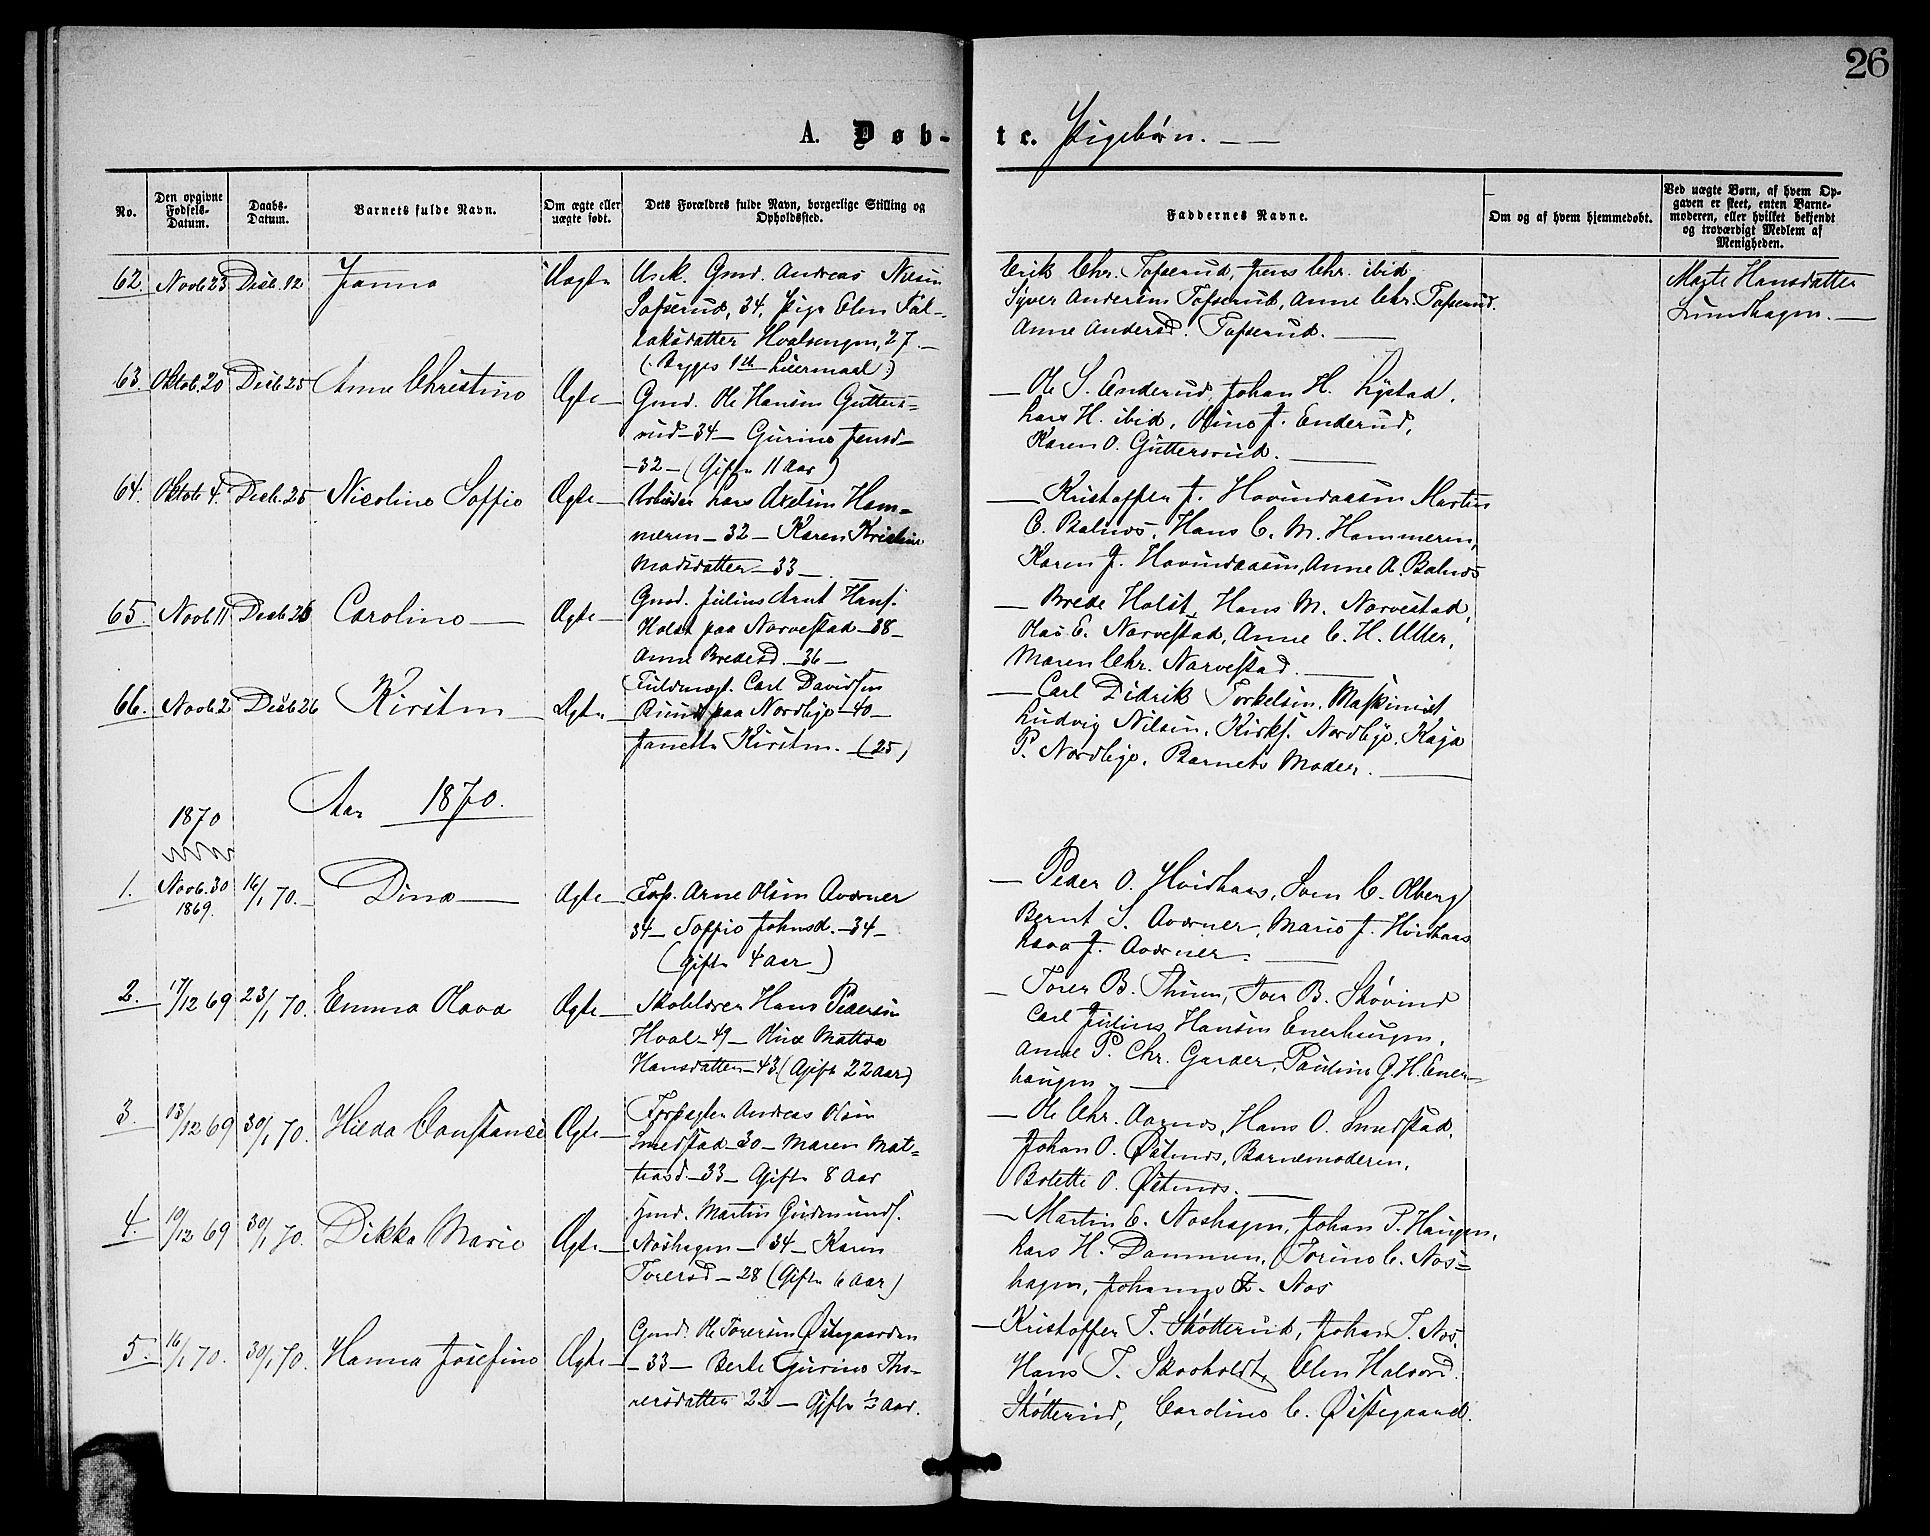 26
A. Døb-
te. Pigebørn.
No.
Den opgivne
Fødsels-
Datum.
Daabs-
Datum.
Barnets fulde Navn.
Om ægte eller
uægte født.
Dets Forældres fulde Navn, borgerlige Stilling og
Opholdssted.
Faddernes Navne.
Om og af hvem hjemmedøbt.
Ved uægte Børn, af hvem Op-
gaven er skeet, enten Barne-
moderen, eller hvilket bekjendt
og troværdigt Medlem af
Menigheden.
62. Novb. 23 Decb. 12 Uægte Gmd. Andreas
34, Pige Elen Fal-
laksdatter Hvalsengen, 27.
Erik Chr. Tofserud, Jens Chr. ibid,
Syver Andersen Tofserud, Anne Chr. Tofserud.
Anne Andersd. Tofserud.
Marte Hansdatter
Lundhagen.
63. Oktob. 20 Decb. 25 Anne Christine Ægte
Gmd. Ole Hansen Gutters-
rud - 34 - Gurine Jensd -
- 32 - (Gifte 11 Aar)
Ole S. Enderud, Johan H. Lystad,
Lars H. ibid, Oline J. Enderud,
Karen O. Guttersrud.
64. Oktob 4. Decb. 25 Nicoline Soffie Ægte
Arbeider Lars Axelsen Ham-
meren - 32 - Karen Kristine
Madsdatter - 33 -
Kristoffer J. Hovindaasen Martin
C. Balnes, Hans C. M. Hammeren,
Karen J. Hovindaasen, Anne A. Balnes
65. Novb 11 Decb 26 Caroline Ægte
Gmd. Julius Arnt Hans.
Holst paa Narvestad - 38 -
Anne Bredesd. - 36 -
Brede Holst, Hans M. Narvestad,
Olas E. Narvestad, Anne C. H. Uller,
Maren Chr. Narvestad.
66. Novb. 2 Decb 26 Kirsten Ægte
Fuldmægt. Carl Davidsen
paa Nordbye - 40 -
Janette Kirsten. (25)
Carl Didrik Torkelsen, Maskinist
Ludvig Nilsen, Kirks. Nordbye, Kaja
P. Nordbye, Barnets Moder.
Aar 1870.
1870
1. Novb. 30 1869. 16/1 70. Dina Ægte
Arne Olsen Averner
34 - Soffie Johnsd. - 34 -
(Gifte 4 Aar)
Peder O. Hvidhaas, Sven C. Olberg
Bernt S. Averner, Marie J. Hvidhaas
J. Averner.
2. 17/12 69 23/1 70. Emma Olava Ægte
Skolelærer Hans Pedersen
Hval - 49 - Mattea
Hansdatter - 43 (Gifte 22 Aar)
Torer B. Thuen, Iver B. Skovind
Carl Julius Hansen Enerhaugen,
Anne P. Chr. Garder, Pauline G. H. Ener-
haugen
3. 13/12 69 30/1 70. Hilda Constance Ægte
Forpagter Andreas Olsen
Smedstad - 30 - Maren Mat-
teasd. - 33 - Gifte 8 Aar
Ole Chr. Aarnes, Hans O. Smedstad,
Johan O. Østenes, Barnemoderen,
Bolette O. Østenes.
4. 19/12 69 30/1 70. Dikka Marie Ægte
Gmd. Martin Gudmunds.
Noshagen - 34 - Karen
Torersd - 28 (Gifte 6 Aar)
Martin E. Noshagen, Johan P. Haugen,
Lars H. Dammen, Torine C. Nos-
hagen, Johanne Z. Nos
5. 16/1 70. 30/1 70. Hanna Josefine Ægte
Gmd. Ole Torersen Østegaarden
- 33 - Berte Gurine Tho-
rersdatter 22 - Gifte 1/2 Aar.
Kristoffer T. Skotterud, Johan T. Nos,
Hans T. Skovholdt, Elen Halvord.
Skotterud, Caroline C. Østegaard.